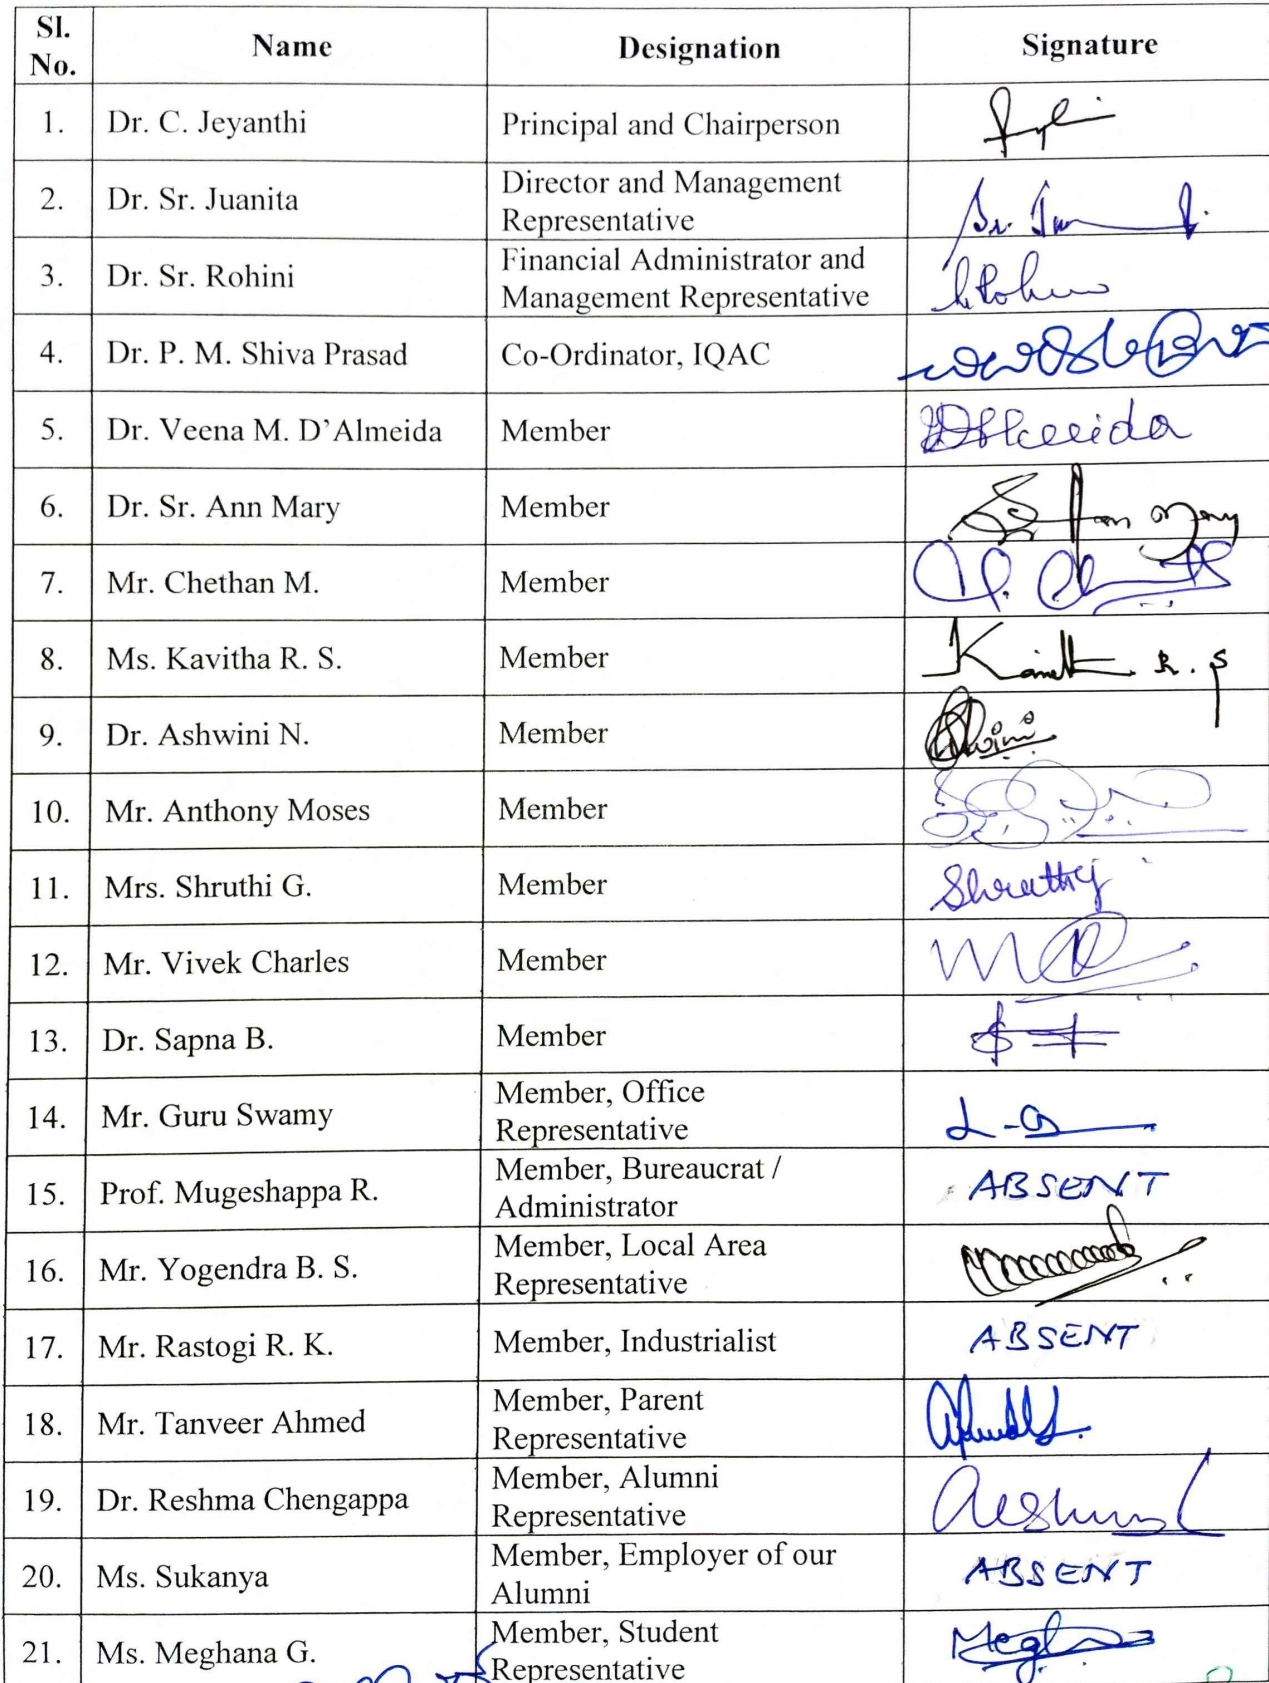 Sl. No. Name Designation Signature
1. Dr. C. Jeyanthi Principal and Chairperson
2. Dr. Sr. Juanita Director and Management
Representative
3. Dr. Sr. Rohini Financial Administrator and
Management Representative
4. Dr. P. M. Shiva Prasad Co-Ordinator, IQAC
5. Dr. Veena M. D'Almeida Member
6. Dr. Sr. Ann Mary Member
7. Mr. Chethan M. Member
8. Ms. Kavitha R. S. Member
9. Dr. Ashwini N. Member
10. Mr. Anthony Moses Member
11. Mrs. Shruthi G. Member
12. Mr. Vivek Charles Member
13. Dr. Sapna B. Member
14. Mr. Guru Swamy Member, Office
Representative
15. Prof. Mugeshappa R. Member, Bureaucrat / ABSENT
Administrator
16. Mr. Yogendra B. S. Member, Local Area
Representative
17. Mr. Rastogi R. K. Member, Industrialist ABSENT
18. Mr. Tanveer Ahmed Member, Parent
Representative
19. Dr. Reshma Chengappa Member, Alumni
Representative
20. Ms. Sukanya Member, Employer of our ABSENT
Alumni
21. Ms. Meghana G. Member, Student
Representative